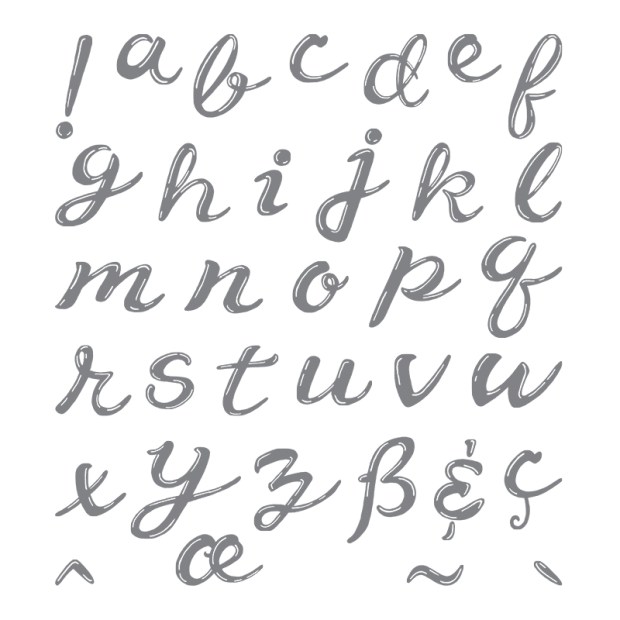 ! a b c d e f
g h i j k l
m n o p q
r s t u v w
x y z ß & ç
^ œ ~ `